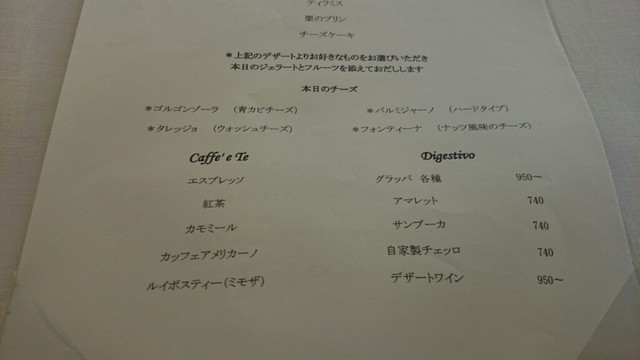 ティラミス
栗のプリン
チーズケーキ
＊上記のデザートよりお好きなものをお選びいただき
本日のジェラートとフルーツを添えておだしします
本日のチーズ
＊ゴルゴンゾーラ （青カビチーズ） ＊パルミジャーノ （ハードタイプ）
＊タレッジョ （ウォッシュチーズ） ＊フォンティーナ （ナッツ風味のチーズ）
Caffe' e Te
エスプレッソ
紅茶
カモミール
カッフェアメリカーノ
ルイボスティー（ミモザ）
Digestivo
グラッパ 各種 950～
アマレット 740
サンブーカ 740
自家製チェッロ 740
デザートワイン 950～